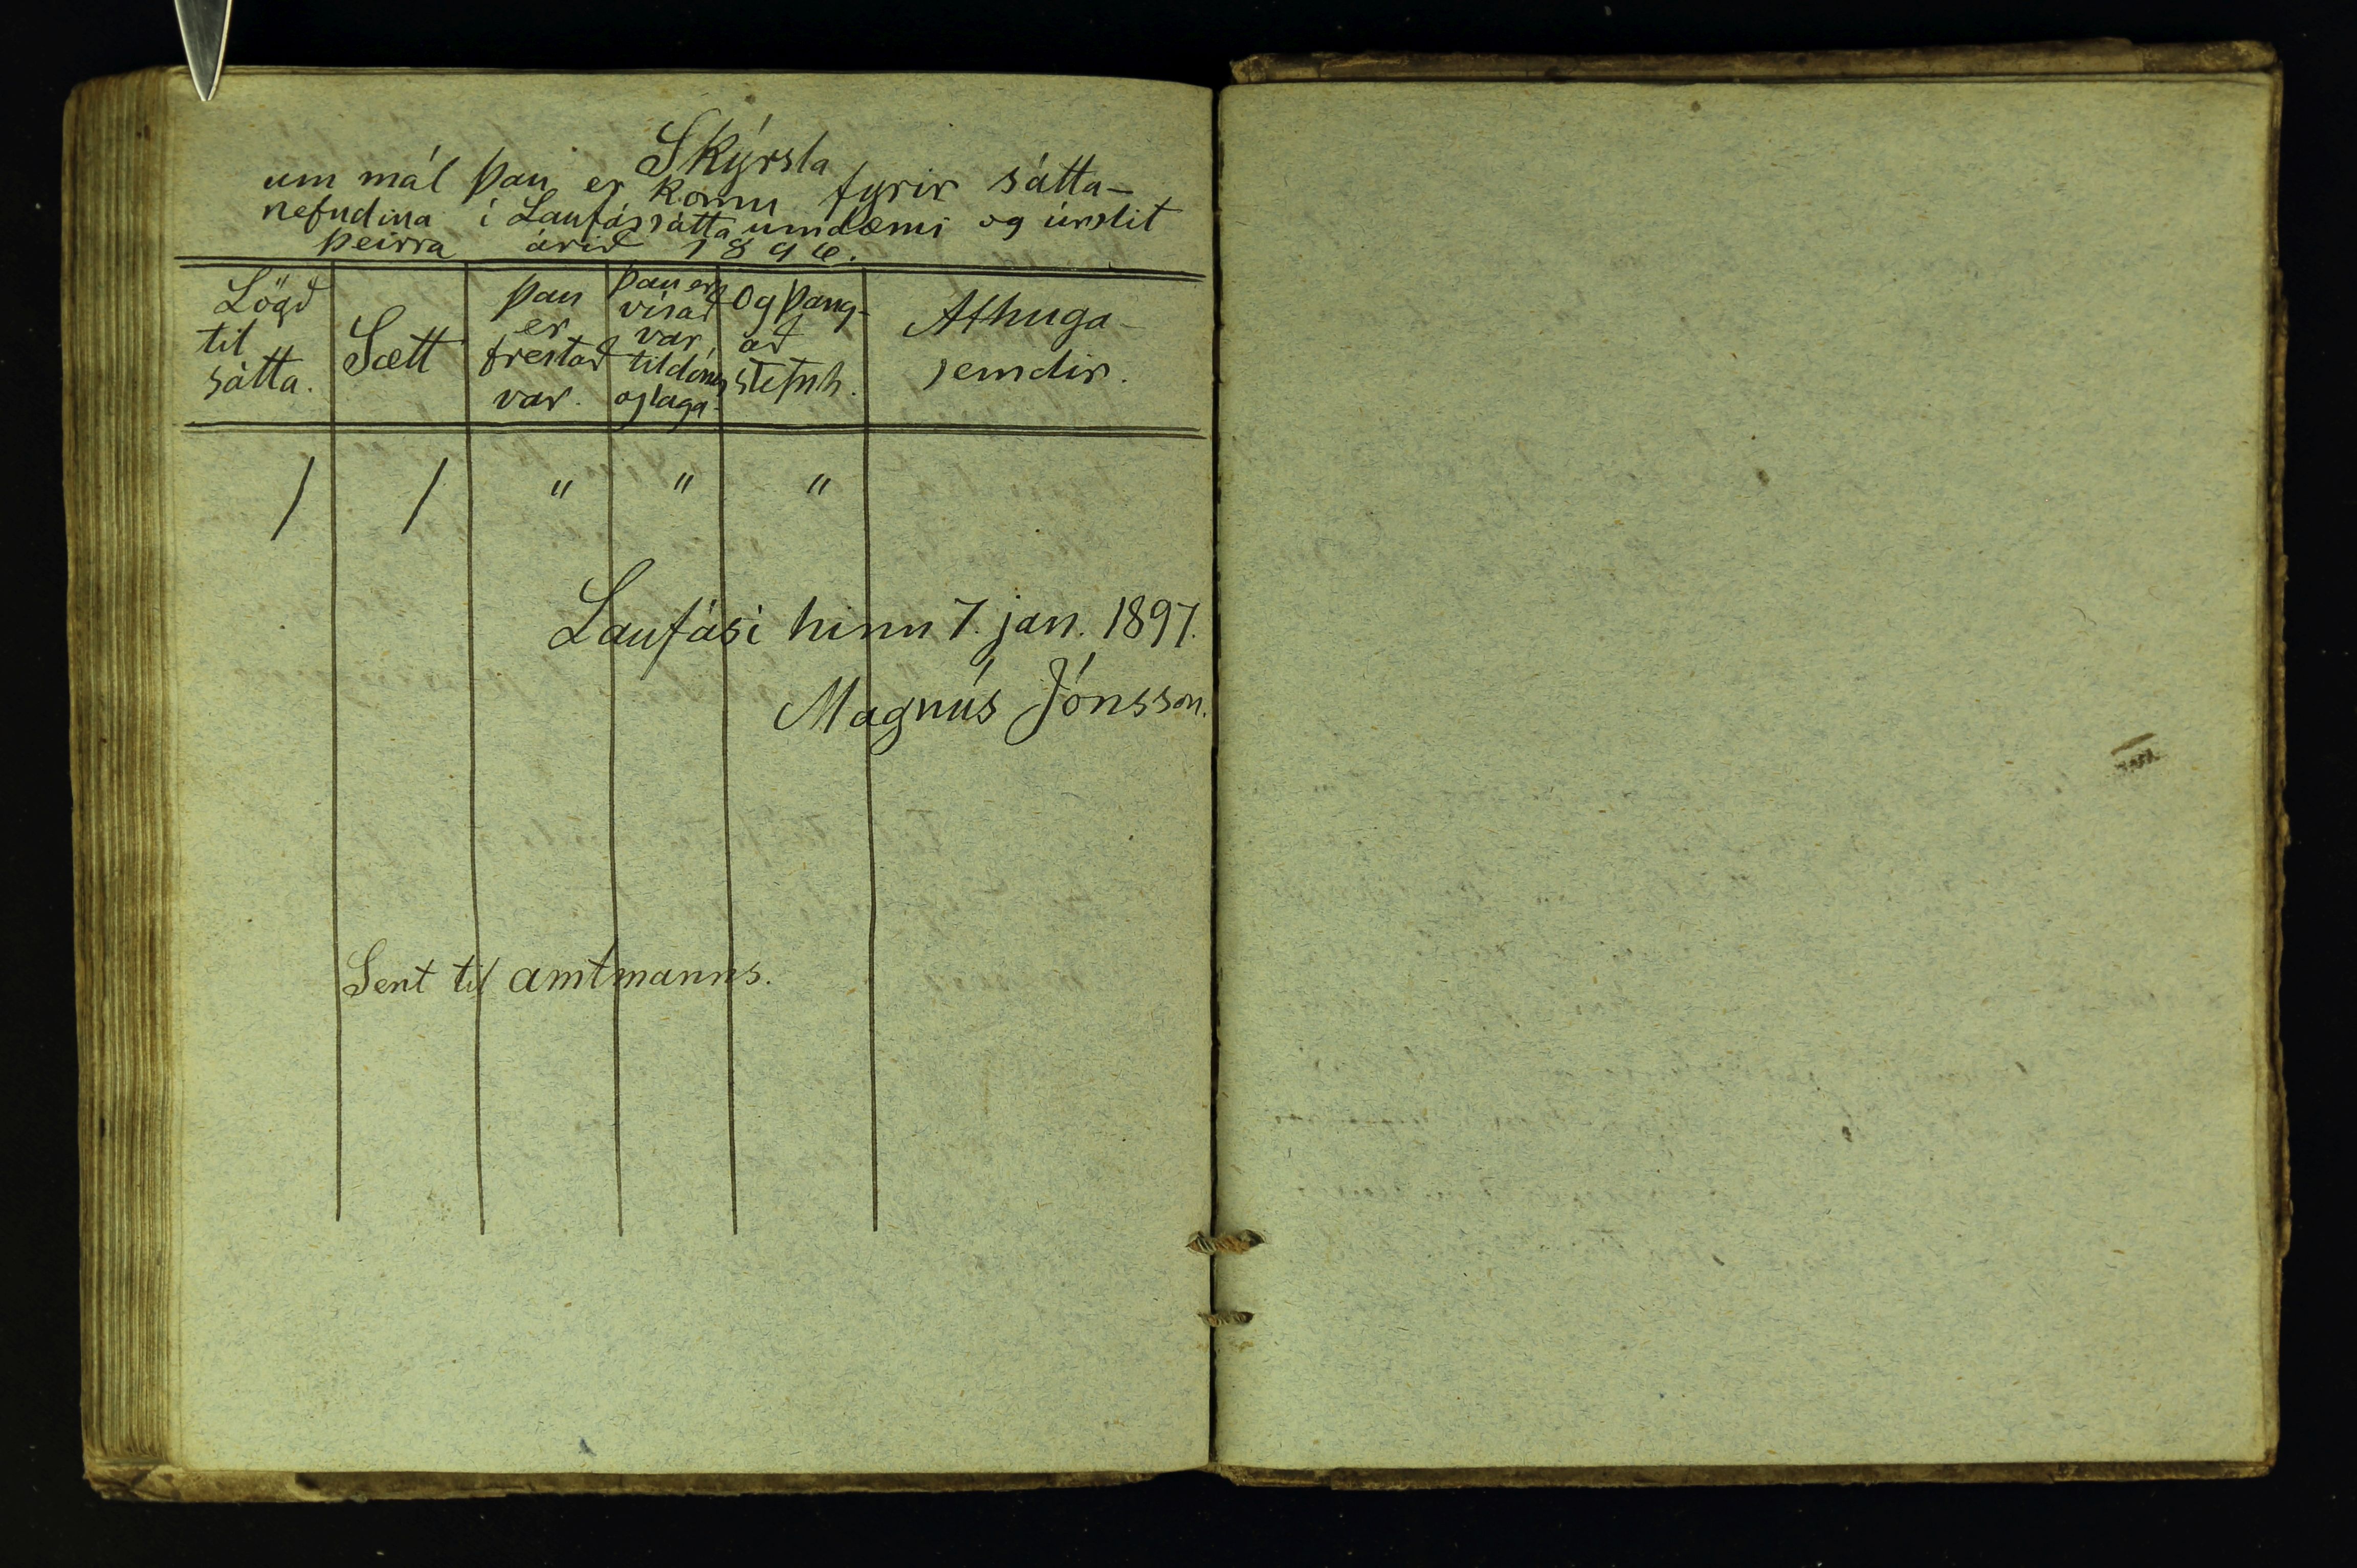 Skýrsla
um mál þau er komu fyrir sátta-
nefndina í Laufássáttaumdæmi og úrslit
þeirra árið 1896.
Lögð
til
sátta.
Sætt
þau
er
frestað
var.
þau er
vísað
var
til dóms
og laga
og þang-
að
stefnh.
Athuga-
semdir.
1 1 " " "
Laufási hinn 7. jan. 1897.
Magnús Jónsson.
Sent til amtmanns.